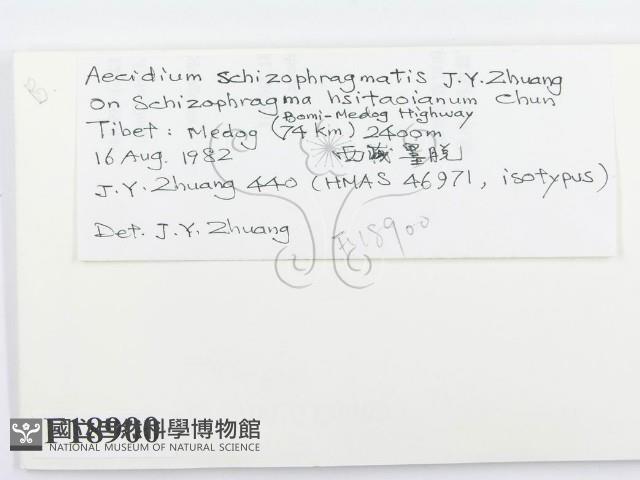 B.
Aecidium schizophragmatis J.Y.Zhuang
on Schizophragma hsitaoianum Chun
Bomi-Medog Highway
Tibet: Medog (74 km) 2400m
16 Aug. 1982 西藏墨脱
J.Y. Zhuang 440 (HMAS 46971, isotypus)
Det. J.Y. Zhuang
F18900
F18900
國立自然科學博物館
NATIONAL MUSEUM OF NATURAL SCIENCE